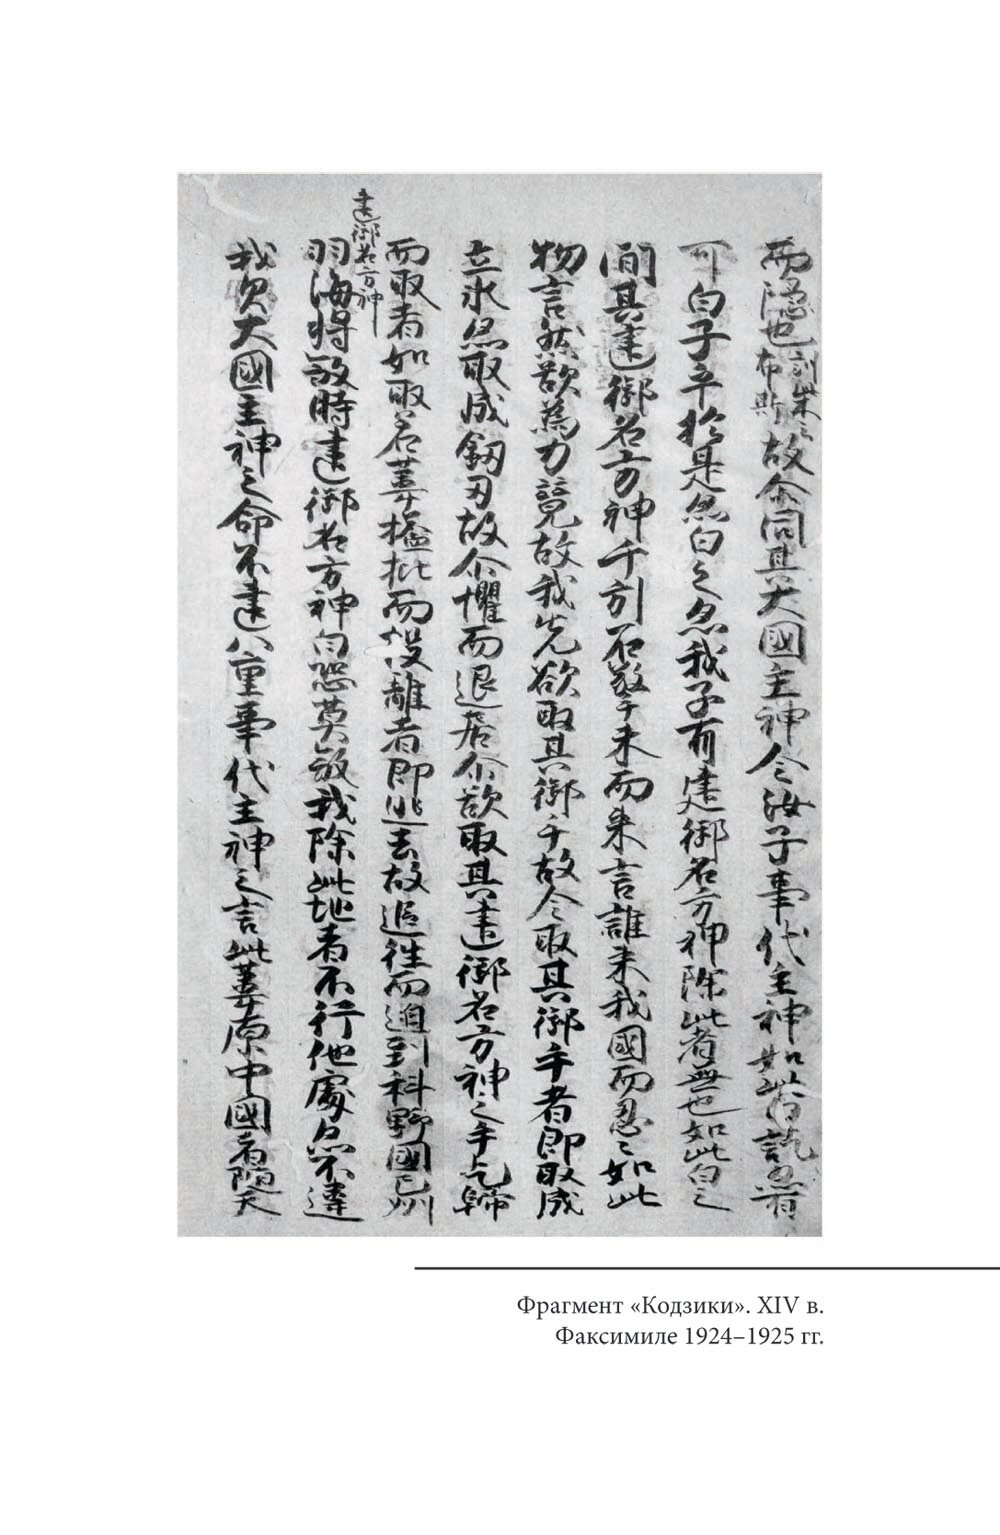 而隠也訓柴云布斯故尒問其大國主神今汝子事代主神如此白訖忽有
可白子乎於是忽白之忽我子有建御名方神除此者無也如此白之
間其建御名方神千引石擎手末而来言誰来我國而忍〻如此
物言然欲為力競故我先欲取其御手故令取其御手者即取成
立氷忽取成釼刃故尒懼而退居尒欲取其建御名方神之手乞歸
而取者如取若葦搤批而投離者即逃去故追往而迫到科野國之州
羽海将敬時建御名方神白恐莫敬我除此地者不行他處忽不違
建御名方神
我父大國主神之命不違八重事代主神之言此葦原中國者随天
Фрагмент «Кодзики». XIV в.
Факсимиле 1924–1925 гг.